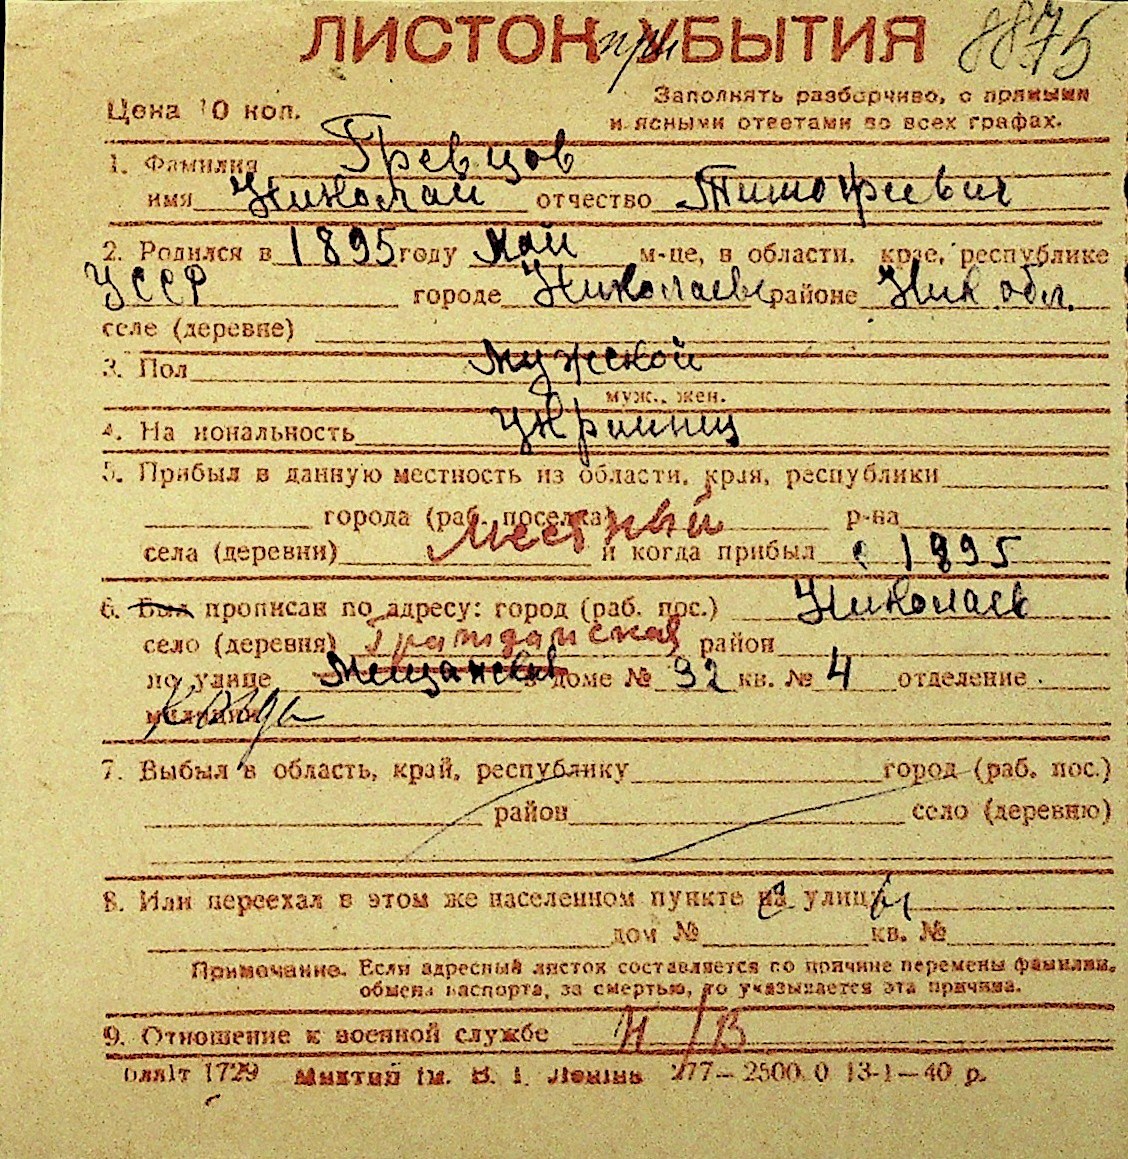 ЛИСТОК при УБЫТИЯ 8875
Цена 10 коп.
Заполнять разборчиво, с прямыми
и ясными ответами во всех графах.
1. Фамилия Гревцов
имя Николай отчество Тимофеевич
2. Родился в 1895 году Май м-це, в области, крае, республике
УССР городе Николаеве районе Ник обл.
селе (деревне)
3. Пол Мужской
муж., жен.
4. Национальность украинец
5. Прибыл в данную местность из области, края, республики
города (раб. поселка) р-на
Местный
села (деревни) и когда прибыл с 1895
6. Был прописан по адресу: город (раб. пос.) Николаев
село (деревня) Гражданская район
по улице Мещанская в доме № 92 кв. № 4 отделение
милиции
7. Выбыл в область, край, республику город (раб. пос.)
район село (деревню)
8. Или переехал в этом же населенном пункте с улицы
дом № кв. №
Примечание. Если адресный листок составляется по причине перемены фамилии,
обмена паспорта, за смертью, то указывается эта причина.
9. Отношение к военной службе Н/В
1729 ім. В. І. Леніна 277—2500.0 13-1—40 р.